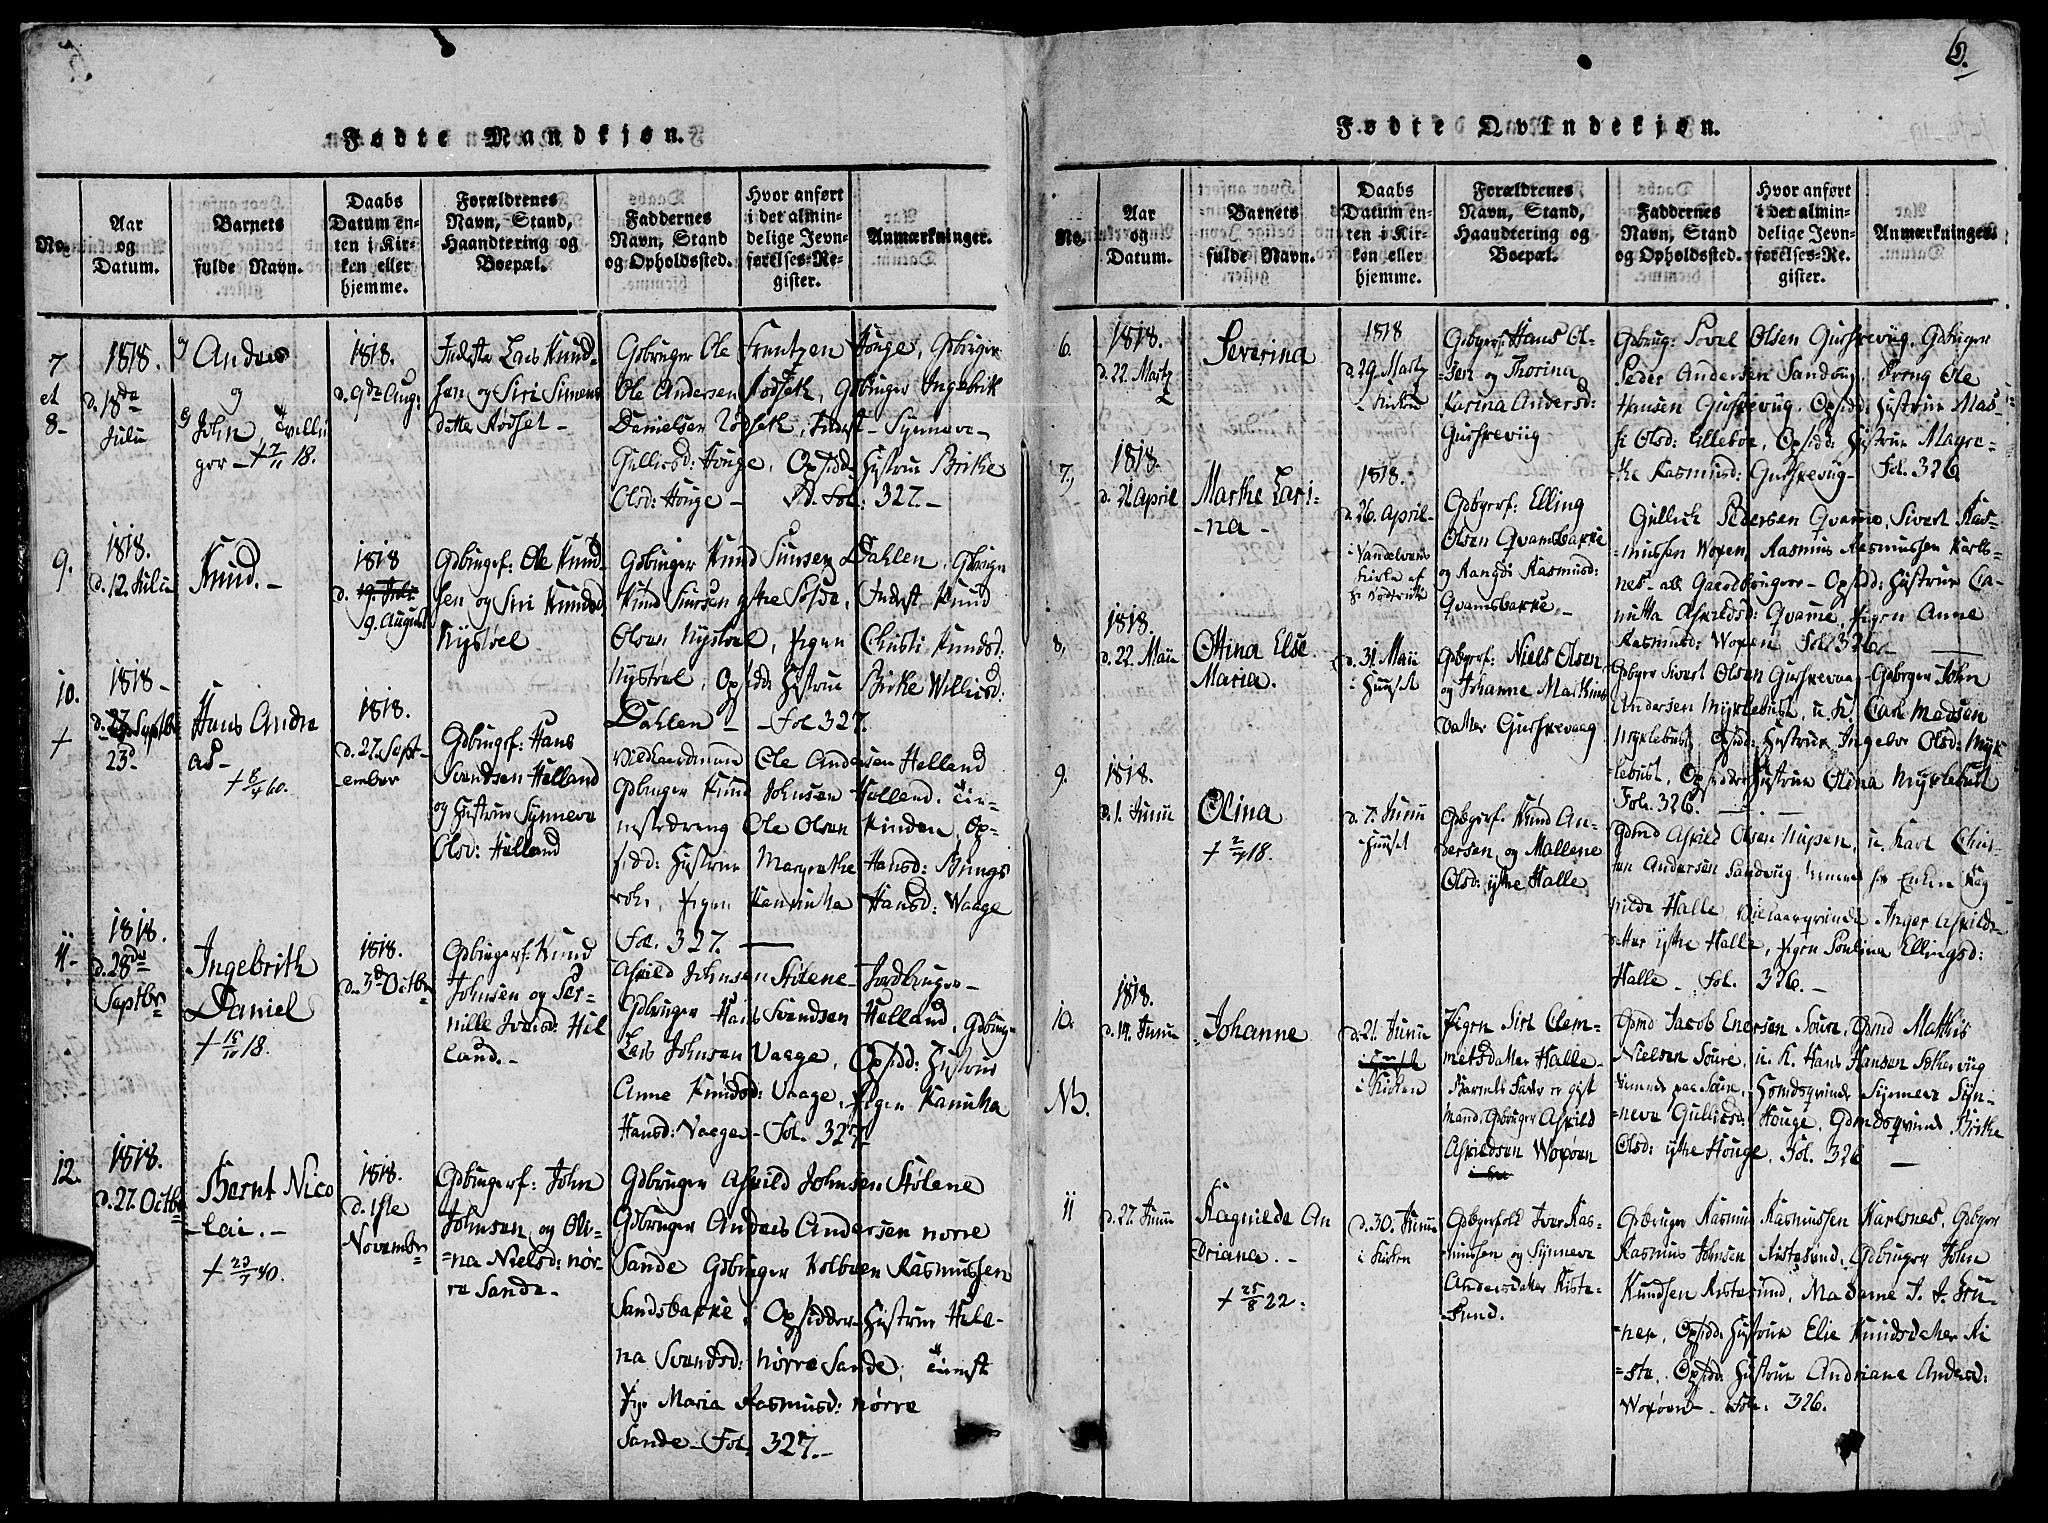 Fødte Mandkjøn.
No.
Aar
og
Datum.
Barnets
fulde Navn.
Daabs
Datum en-
ten i Kir-
ken eller
hjemme.
Forældrenes
Navn, Stand,
Haandtering og
Boepæl.
Faddernes
Navn, Stand
og Opholdssted.
Hvor anført
i det almin-
delige Jevn-
førelses-Re-
gister.
Anmærkninger.
7
et
8-
1818.
d. 18de
Julii
Anders
og
John
+ 18.
1818.
d. 9de Aug:
Lars Knud-
sen og Siri Simens
datter Rødset -
Gdbruger Ole Frantzen Houge, Gdbruger
Ole Andersen Rødseth, Gdbruger Ingebrik
Danielsen Rødseth, Synneve
Gullicsd: Houge, Opsidd: Hustrue Birthe
Olsd: Houge - Fol: 327.-
9.
1818.
d. 12 Julii
Knud.-
1818
d. 19 Juli
9. August
Gdbrugerf: Ole Knud
sen og Siri Knudsd
Nystøel
Gdbruger Knud Dahlen, Gdbruger
Knud
Olsen Nystøel, Pigen Christi Knudsd:
Nystøel, Opsidd: Hustrue Birthe Willicsd:
Dahlen - Fol. 327.
10.
+
1818-
d. 27 Septbr
23d
Hans Andre
as-
+ 8/4 60.
1818.
d. 27. Sept-
ember
Gdbrugerf: Hans
Svendsen Helland
og Hustrue Synneve
Olsd: Helland
Ole Andersen Helland
Gdbruger Knud Johnsen Helland.
Ole Olsen Kinden, Op-
sidd: Hustrue Margrethe Hansd:
Pigen Hansd: Waage
Fol. 327.
11-
1818.
d. 28de
Septbr
Ingebrith
Daniel
+ 15/10 18.
1818.
d. 3d Octbr
Gdbrugerf: Knud
Johnsen og Per-
nille Hel
land.-
Askild Johnsen Stølene
Gdbruger Hans Svendsen Helland, Gdbruger
Lars Johnsen Vaage, Opsidd: Hustrue
Anne Knudsd: Vaage, Pigen
Hansd: Vaage- Fol. 327
12.
1818.
d. 27. Octbr
Bernt Nico
-lai.-
+ 23/7 40.
1818.
d. 1ste
Novembr
Gdbrugerf: John
Johnsen og Oli-
na Nielsd: nør-
re Sande.
Gdbruger Askild Johnsen Stølene
Gdbruger Anders Andersen norre
Sande Gdbruger Kolbeen Rasmussen
Sandsbakke, Opsidder Hustrue Hele-
na Svendsd: nørre Sande,
Maria Rasmusd: nørre
Sande- Fol. 327.-
6.
Fødte Qvindekjøn.
No.
Aar
og
Datum.
Barnets
fulde Navn.
Daabs
Datum en-
ten i Kir-
ken eller
hjemme.
Forældrenes
Navn, Stand,
Haandtering og
Boepæl.
Faddernes
Navn, Stand
og Opholdssted.
Hvor anført
i det almin-
delige Jevn-
førelses-Re-
gister.
Anmærkninger.
6.
1818.
d. 22. Martz
Severina
1818
d. 29. Martz
i Kirken
Gdbgerf: Hans Ol-
sen og Thorina
Karina Andersd:
Gurskevüg
Gdbrug: Povel Olsen Gurskevüg. Gdbruger
Peder Andersen Sandvüg, Dreng Ole
Hansen Gurskevüg, Opsidd: Hustrue
Olsd: Lillebøe, Opsidd: Hustrue Magre-
the Rasmusd: Gurskevüg- Fol. 326
7,
1818.
d. 21 April
Marthe Lari-
-na-
1818.
d. 26. April
i Vandelvens
Kirke af
Gdbgerf: Elling
Olsen Qvambsbakke
og Rangdi Rasmusd:
Qvamsbakke.-
Gullich Pedersen Qvamme, Sivert Ras-
mussen Woxen, Rasmus Rasmussen Karls-
nes- alle Gaardbrugere- Opsidd: Hustrue
Askildsd: Qvamme, Pigen Anne
Rasmusd: Woxen Fol. 326.
8,
1818.
d. 22. Maii
Ottina Else
Maria.
d. 31. Maii
i Huuset
Gdbgerf: Niels Olsen
og Johanne Mathias
datter Gurskevaag
Gdbger Sivert Olsen Gurskevaag- Gdbrger John
Andersen Myklebust, u. K. Carl Madsen
Myklebust, Opsidd: Hustrue Ingebor Olsd: Myk
lebust, Opsidder Hustrue Olina Myklebust
Fol. 326.
9.
1818.
d. 1. Junii
Olina
+ 2/7 18.
d. 7. Junii
i Huuset
Gdbgerf. Knud An-
dersen og Mallene
Olsd: ytre Halle
Gdmd Askild Olsen u. Karl
Andersen Sandvüg
Halle, Inger Askilds-
datter ytre Halle, Pigen Poulina Ellingsd:
Halle - Fol. 326.-
10.
NB.
1818.
d. 14. Junii
Johanne
d. 21. Junii
i Huuset
i Kirken
Pigen Siri Clem-
metsdatter Halle
Barnets Fader er gift
mand, Gdbruger Askild
Askildsen Woxøen
Gdmd Jacob Endresen Soure, Gdmd Mathis
Nielsen Soure, u. K. Hans Hansen
Synneve
Gullicsd: Houge, Birthe
Olsd: ytre Houge, Fol. 326 -
11
d. 27. Junii
Ragnilde An
driane.-
+ 25/8 22.
d. 30. Junii
i Kirken
Gdbgerfold Iver Ras-
mussen og Synneve
Andersdatter Riste-
sund.
Gdbruger Rasmus Rasmussen Karlsnes, Gdbger
Rasmus Johnsen Ristesund, Gdbruger John
Knudsen Ristesund, Madame
Opsidd: Hustrue Elie Knudsdatter Ri
-ste, Opsidd: Hustrue Andriane Andersd:
Woxøen - Fol: 326.